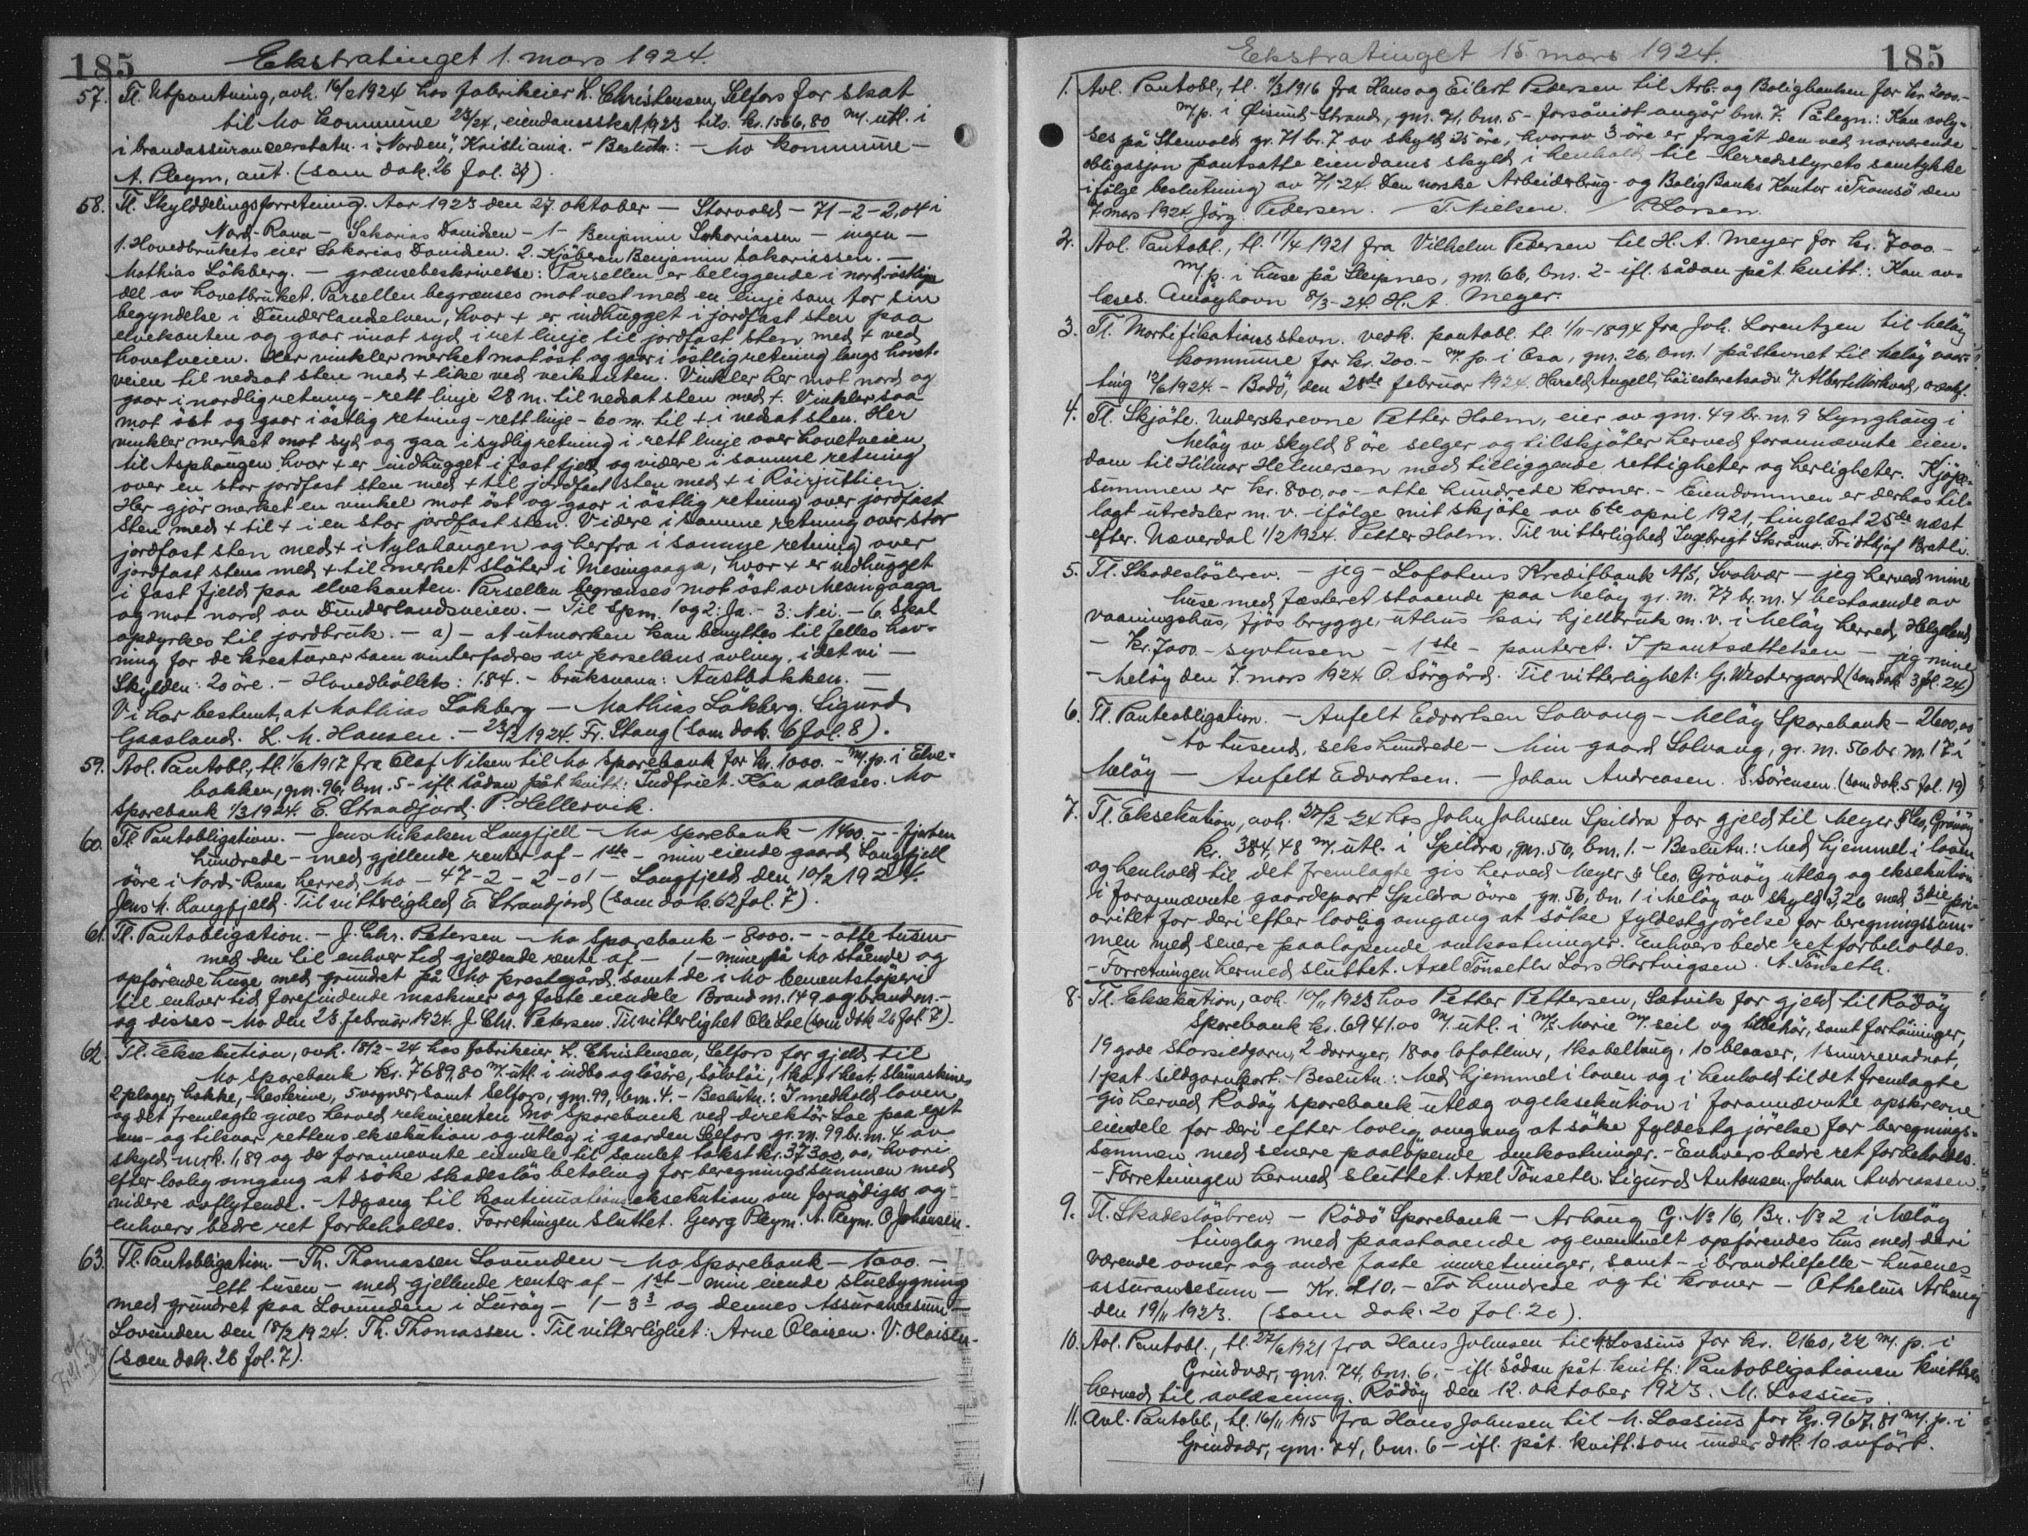 185
Ekstratinget 1. mars 1924.
57. Tl. Utpantning, avh. 16/2 1924 hos fabrikeier L. Christensen, Selfors for skat
til Mo kommune 23/24, eiendomsskat 1923 tils. kr. 1566,80 m/. utl. i
i brandassuranceerstatn. i "Norden", Kristiania. - Beslutn.: - Mo kommune -
A. Pleym, aut. (som dok. 26 fol. 34).
58. Tl. Skylddelingsforretning. Aar 1923 den 27. oktober - Storvold - 71-2-2,04 i
Nord-Rana - Sakarias Davidsen - 1 - Benjamin Sakariassen - ingen -
1. Hovedbrukets eier Sakarias Davidsen. 2. Kjøberen Benjamin Sakariassen. -
Mathias Løkberg. - grænsebeskrivelse: Parsellen er beliggende i nordøstlige
del av hovetbruket. Parsellen begrænses mot vest med en linje som tar sin
begyndelse i Dunderlandselven, hvor + er indhugget i jordfast sten paa
elvekanten og gaar imot syd i ret linje til jordfast sten med + ved
hovetveien. Her vinkler merket mot øst og gaar i østlig retning langs hovet-
veien til nedsat sten med + like ved veikanten. Vinkler her mot nord og
gaar i nordlig retning - rett linje 28 m. til nedsat sten med +. Vinkler saa
mot øst og gaar i østlig retning - rett linje - 60 m. til + i nedsat sten. Her
vinkler merket mot syd og gaa i sydlig retning i rett linje over hovetveien
til Asphaugen hvor + er indhugget i fast fjell og videre i samme retning
over en stor jordfast sten med + til jordfast sten med + i Røirjutlien.
Her gjør merket en vinkel mot øst og gaar i østlig retning over jordfast
sten med + til + i en stor jordfast sten. Videre i samme retning over stor
jordfast sten med + i Nylahaugen og herfra i samme retning over
jordfast sten med + til merket støter i Mesingaaga, hvor + er indhugget
i fast fjeld paa elvekanten. Parsellen begrenses mot øst av Mesingaaga
og mot nord av Dunderlandsveien. - Til Spm. 1 og 2: Ja. - 3: Nei. - 6. Skal
opdyrkes til jordbruk. - a) - at utmarken kan benyttes til felles hav-
ning for de kreaturer som vinterfødres av parsellens avling, idet vi -
Skylden: 20 øre. - Hovedbøllets: 1.84. - bruksnavn: Austbakken. -
Vi har bestemt, at Mathias Løkberg - Mathias Løkberg. Sigurd
Gaasland. L. M. Hansen. - 23/2 1924. Fr. Stang (som dok. 6 fol. 8).
59. Avl. Pantobl., tl. 1/6 1917 fra Olaf Nilsen til Mo sparebank for kr. 1000. - m/. p. i Elve-
bakken, gnr. 96, bnr. 5 - ifl. sådan påt. kvitt: Indfriet. Kan avlæses. Mo
Sparebank 1/3 1924. E. Strandjord. P. Hellervik.
60. Tl. Pantobligation. - Jens Mikalsen Langfjell - Mo sparebank - 1400. - - fjorten
hundrede - med gjellende renter af - 1ste - min eiende gaard Langfjell
øvre i Nord-Rana herred, Mo - 47-2-2-01 - Langfjeld den 10/2 1924.
Jens M. Langfjeld. Til vitterlighed E. Strandjord (som dok. 62 fol. 7).
61. Tl. Pantobligation. - J. Chr. Petersen - Mo Sparebank - 8000. - - otte tusen -
med den til enhver tid gjeldende rente af - 1 - mine på Mo stående og
opførende huse med grundet på Mo prestegård samt de i Mo Cementstøperi
til enhver tid forefindende maskiner og faste eiendele Brand m. 149 og brandm. -
og disses - Mo den 23. februar 1924. J. Chr. Petersen. Til vitterlighet Ole Loe (som dok. 26 fol. 7).
62. Tl. Eksekution, avh. 18/2-24 hos fabrikeier L. Christensen, Selfors for gjeld til
Mo sparebank kr. 7689,80 m/. utl. i indbo og løsøre, sølvtøi, 1 ko, 1 hest, slåmaskine,
2 ploger, hakke, hesterive, 5 vogner, samt Selfors, gnr. 99, bnr. 4. - Beslutn.: I medhold loven
og det fremlagte gives herved rekvirenten Mo Sparebank ved direktør Loe paa eget
an- og tilsvar rettens eksekution og utlæg i gaarden Selfors gr. nr. 99 br. nr. 4 av
skyld mrk. 1,89 og de forannevnte eiendele til samlet takst kr. 37300,00, hvori
efter lovlig omgang at søke skadesløs betaling for beregningssummen med
videre avflytende. - Adgang til kontinuationseksekution om fornødiges og
enhvers bedre ret forbeholdes. Forretningen sluttet. Georg Pleym. A. Pleym. O. Johansen.
63. Tl. Pantobligation - Th. Thomassen Lovunden - Mo Sparebank - 1000. -
ett tusen - med gjellende renter af - 1st - min eiende stuebygning
med grundret paa Lovunden i Lurøy - 1 - 3³ og dennes Assurancesum -
Lovunden den 18/2 1924. Th. Thomassen. Til vitterlighet: Arne Olaisen. V. Olaisen.
(som dok. 26 fol. 7).
185
Ekstratinget 15 mars 1924.
1. Avl. Pantobl., tl. 1/3 1916 fra Hans og Eilert Pedersen til Arb.- og Boligbanken for kr. 2000.-
m/p. i Øisund-Strand, gnr. 71, bnr. 5 - forsåvidt angår bnr. 7. Påtegn.: Kan avly-
ses på Stenvold gr. 71 br. 7 av skyld 25 øre, hvorav 3 øre er fragåt den ved nærværende
obligasjon pantsatte eiendoms skyld i henhold til herredsstyrets samtykke
ifølge beslutning av 7/1-24. Den norske Arbeiderbrug- og Bolig Banks Kontor i Tromsø den
7 mars 1924 Jörg. Pedersen. / T. Nielsen. / P. Larsen.
2. Avl. Pantobl., tl. 11/4 1921 fra Vilhelm Pedersen til H. A. Meyer for kr. 7000. -
m/. p. i huse på Sleipnes, gnr. 66, bnr. 2 - ifl. sådan påt. kvitt.: Kan av-
læses. Amøyhavn 8/3-24. H. A. Meyer.
3. Tl. Mortifikationsstevn. vedk. pantobl. tl. 1/11-1894 fra Joh. Lorentzen til Meløy
kommune for kr. 200.- m/. p. i Osa, gnr. 26, bnr. 1 påstevnet til Meløy vaar-
ting 12/6 1924. - Bodø, den 28de februar 1924. Harald Angell, høiesteretsadv. v/ Albert Mørkved,
4. Tl. Skjøte. Underskrevne Petter Holm, eier av gnr. 49 br. nr. 9 Lynghaug i
Meløy av skyld 8 øre selger og tilskjøter herved forannævnte eien-
dom til Hilmar Helmersen med tilliggende rettigheter og herligheter. Kjøpe-
summen er kr. 800,00 - otte hundrede kroner. - Eiendommen er derhos til-
lagt utredsler m. v. ifølge mit skjøte av 6te april 1921, tinglæst 25de næst
efter. Næverdal 1/2 1924. Petter Holm. Til vitterlighed Ingebrigt Skråmo, Fridthjof Bratli.
5. Tl. Skadesløsbrev. - jeg - Lofotens Kreditbank A/S, Svolvær - jeg herved mine
huse med fæsteret staaende paa Meløy gr. nr. 77 br. nr. 4 bestaaende av
vaaningshus, fjøs brygge, uthus kai hjellbruk m. v. i Meløy herred, Helgeland
- Kr. 7000 - syvtusen - 1ste - panteret. I pantsættelsen - jeg mine
- Meløy den 7. mars 1924. O. Sørgård. Til vitterlighet: G. Westergaard (som dok. 3 fol. 24)
6. Tl. Panteobligation. - Anfelt Edvartsen Solvang - Meløy Sparebank - 2600,00
- to tusend, seks hundrede - min gaard Solvang, gr. nr. 56 br. nr. 17 i
Meløy - Anfelt Edvartsen. - Johan Andreasen. S. Sørensen. (som dok. 5 fol. 19)
7. Tl. Eksekution, avh. 27/2-24 hos John Johnsen Spildra for gjeld til Meyer & Co, Grønøy
kr. 384,48 m/. utl. i Spildra, gnr. 56, bnr. 1. - Beslutn.: Med hjemmel i loven
og henhold til det fremlagte gis herved Meyer & Co. Grønøy utlæg og eksekution
i forannævnte gaardepart Spildra øvre gn. 56, bn. 1 i Meløy av skyld 3,26 med 3die pri-
oritet for deri efter lovlig omgang at søke fyldestgjørelse for beregningssum-
men med senere paaløpende omkostninger. Enhvers bedre ret forbeholdes.
- Forretningen hermed sluttet. Axel Tønseth Lars Hartvigsen. A. Tønseth.
8. Tl. Eksekution, avh. 10/11 1923 hos Petter Pettersen, Sætvik for gjeld til Rødøy
Sparebank kr. 6941.00 m/. utl. i M/S. Marie m/. seil og tilbehør, samt fortøininger,
19 gode storsildgarn, 2 doryer, 1800 lofotliner, 1 kabeltaug, 10 blaaser, 1 snurrevadnot,
1 pat. sildgarnkort. - Beslutn.: Med hjemmel i loven og i henhold til det fremlagte
gis herved Rødøy sparebank utlæg og eksekution i forannævnte opskrevne
eiendele for deri efter lovlig omgang at søke fyldestgjørelse for beregnings-
summen med senere paaløpende omkostninger. - Enhvers bedre ret forbeholdes.
- Forretningen hermed sluttet. Axel Tönseth. Sigurd Antonsen. Johan Andreassen.
9. Tl. Skadesløsbrev - Rødø Sparebank - Arhaug G. No 16, Br. No 2 i Meløy
tinglag med paastaaende og eventuelt opførendes hus med deri
værende ovner og andre faste inretninger, samt - i brandtilfelle - husenes
assuransesum - Kr. 210. - To hundrede og ti kroner - Othelius Arhaug
den 19/11 1923. (som dok. 20 fol. 20).
10. Avl. Pantobl., tl. 27/6 1921 fra Hans Johnsen til M. Lossius for kr. 2160,22 m/. p. i
Grindvær, gnr. 74, bnr. 6. - ifl. sådan påt. kvitt: Pantobligationen kvitteres
herved til avlæsning. Rødøy den 12. oktober 1923. M. Lossius
11. Avl. Pantobl., tl. 16/11 1915 fra Hans Johnsen til M. Lossius for kr. 967,81 m/. p. i
Grindvær, gnr. 74, bnr. 6 - ifl. påt. kvitt. som under dok. 10 anført.